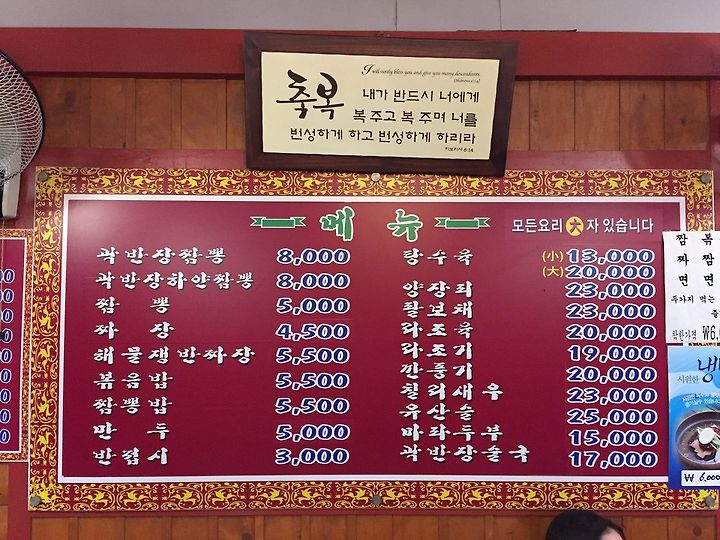 I will surely bless you and give you many descendants.
(Hebrews 6:14)
축복
내가 반드시 너에게
복 주고 복 주며 너를
번성하게 하고 번성하게 하리라
히브리서 6:14
메뉴
모든요리 大 자 있습니다
곽반장짬뽕 8,000
곽반장하얀짬뽕 8,000
짬 뽕 5,000
짜 장 4,500
해물쟁반짜장 5,500
볶음밥 5,500
짬뽕밥 5,500
만 두 5,000
반접시 3,000
탕수육 (小) 13,000
(大) 20,000
양장피 23,000
팔보채 23,000
라조육 20,000
라조기 19,000
깐풍기 20,000
칠리새우 23,000
유산슬 25,000
마파두부 15,000
곽반장술국 17,000
짬 볶
짜 짬
면 면
두가지 먹는
착한가격 ₩6,
시원한 냉
₩ 6,000